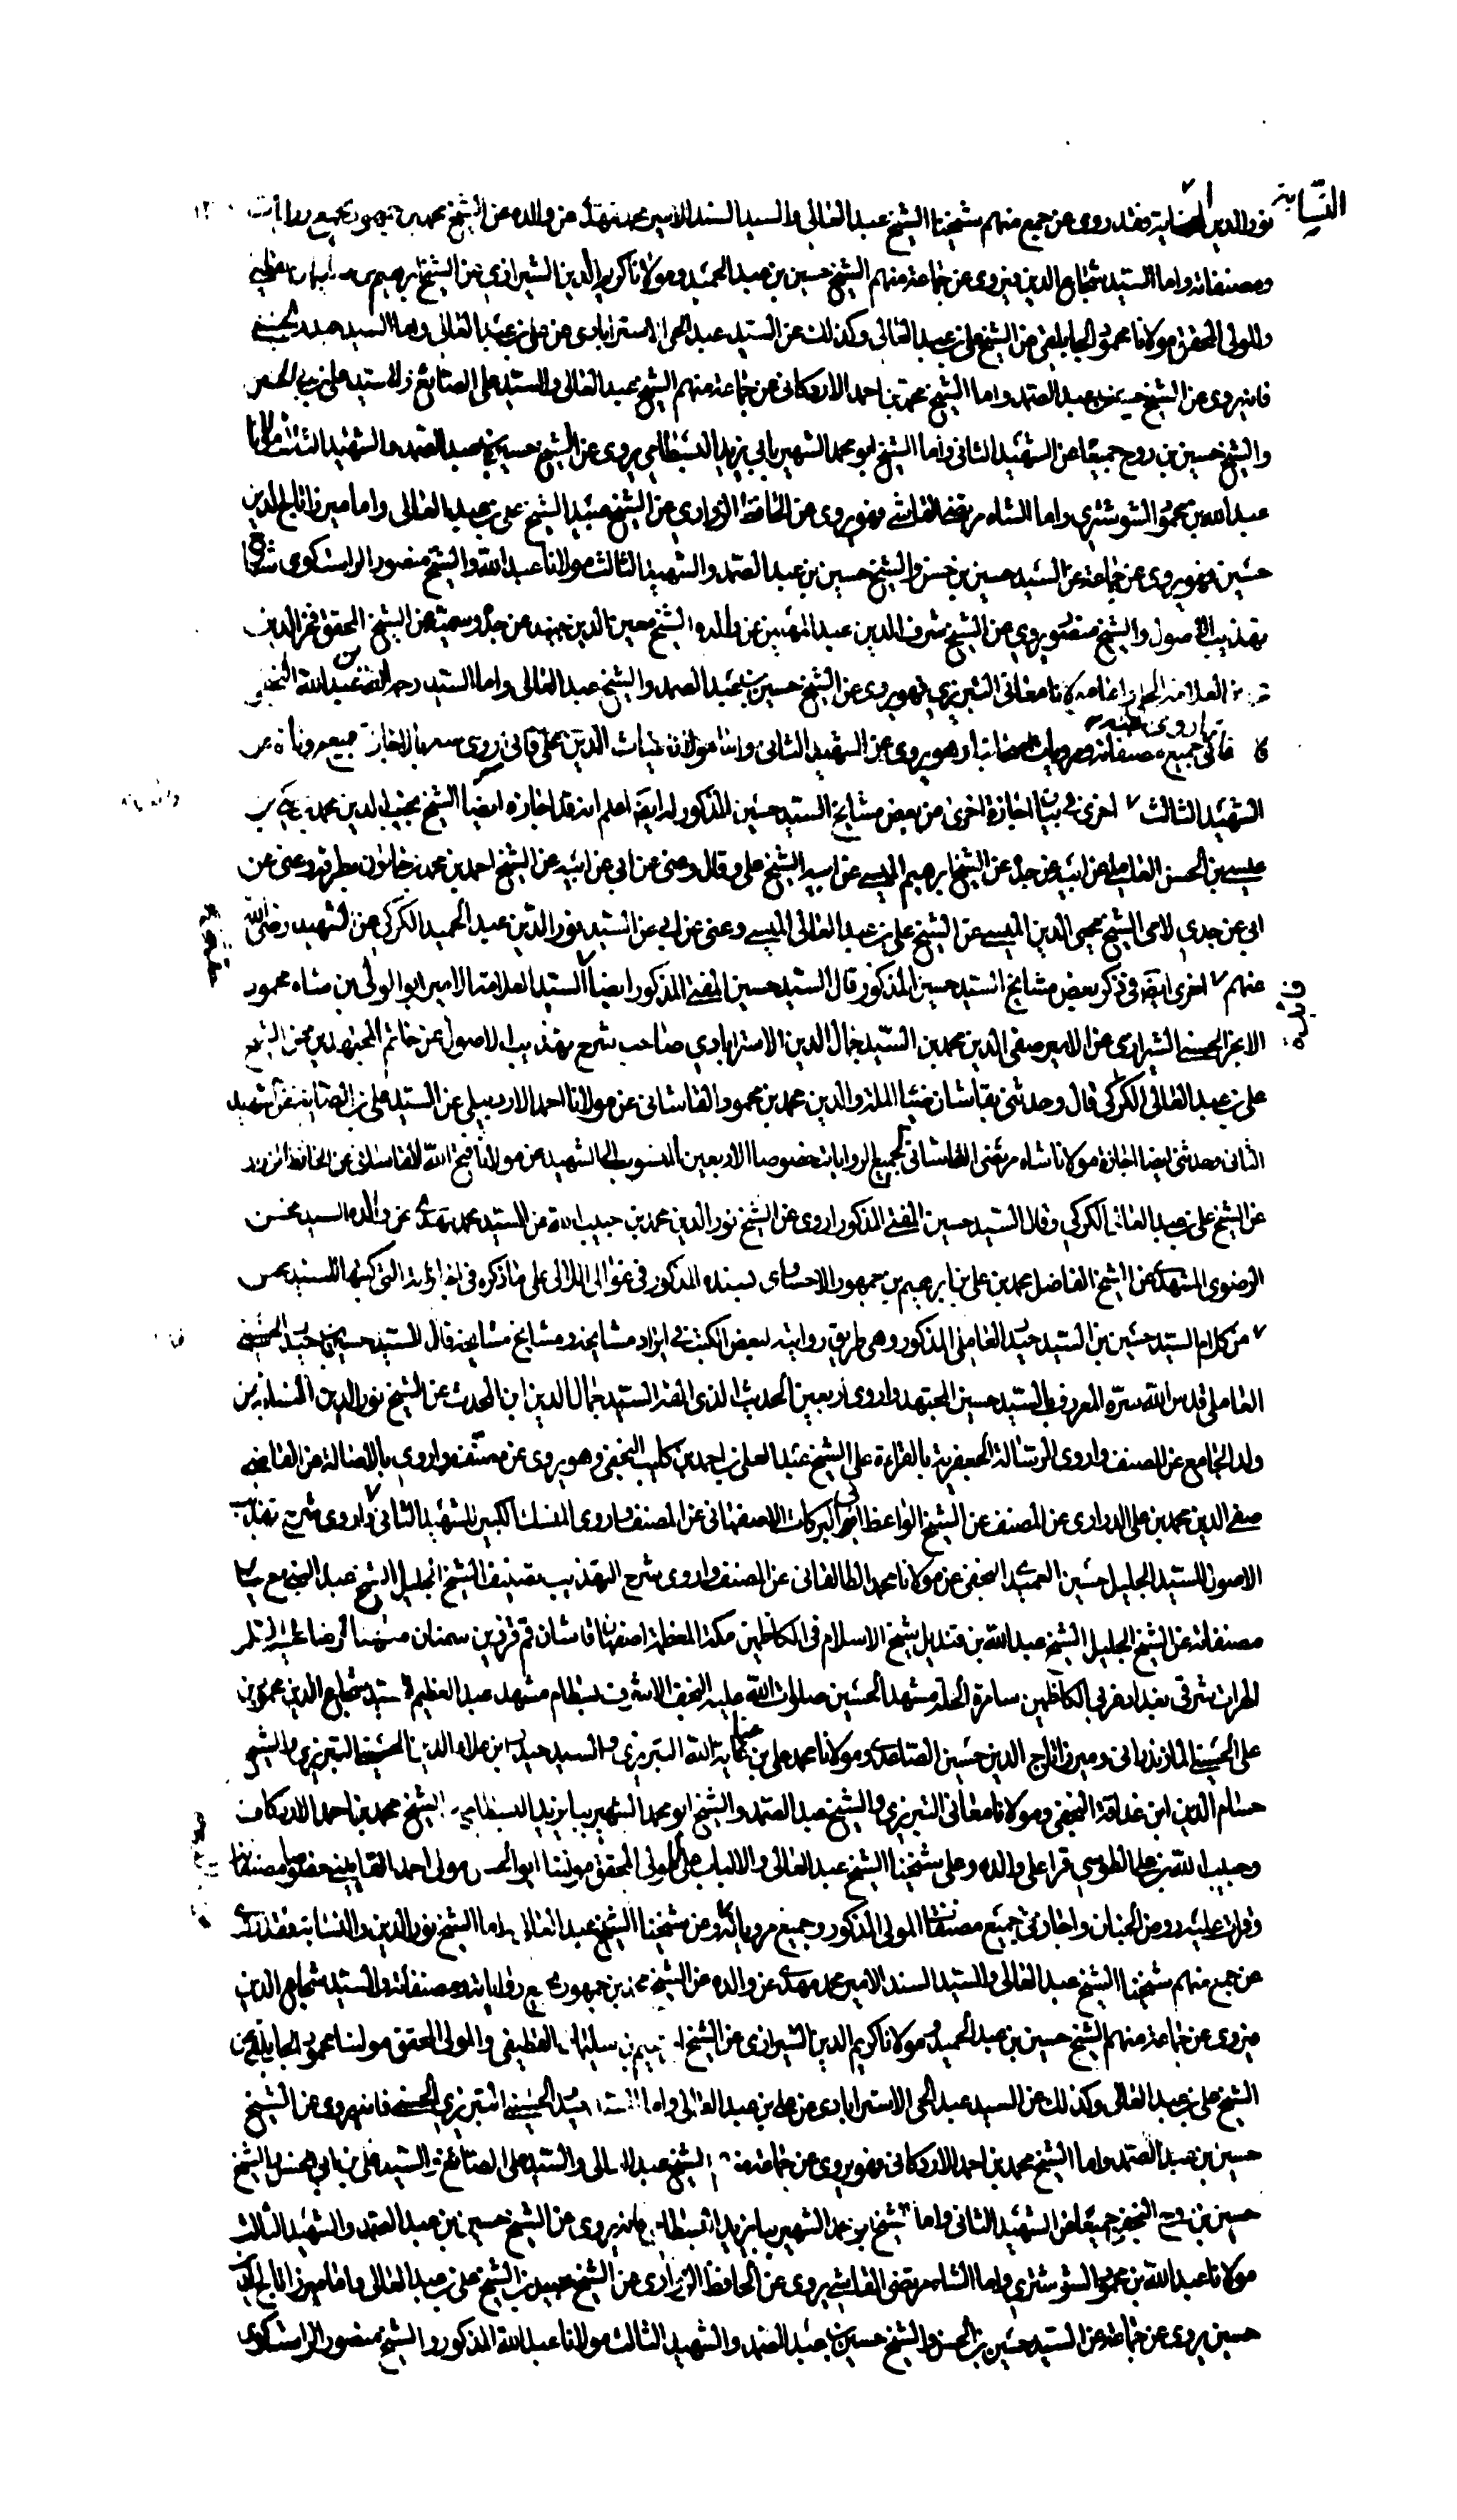 النسابة
نور الدين النسابة فقد روى عن جمع منهم شيخنا الشيخ عبد العالي والسيد السند الامير محمد مهدي عن والده عن الشيخ محمد بن جمهور بجميع روايات
ومصنفاته واما السيد شجاع الدين فيروى عن جماعة منهم الشيخ حسين بن عبد الحميد ومولانا كريم الدين الشيرازي عن الشيخ ابرهيم بن سليمان القطيفي
والمولى المحقق مولانا محمود الجابلقي عن الشيخ علي بن عبد العالى وكذلك عن السيد عبد الحي الاسترابادى عن علي بن عبد العالى واما السيد حيدر الحسيني
فانه يروى عن الشيخ حسين بن عبد الصمد واما الشيخ محمد بن احمد الاردكانى عن جماعة منهم الشيخ عبد العالى والسيد على الصائغ والسيد على بن ابي الحسن
والشيخ حسين بن روح جميعا عن الشهيد الثانى واما الشيخ ابو محمد الشهير بابي يزيد البسطامي يروى عن الشيخ حسين بن عبد الصمد والشهيد الثالث مولانا
عبد الله بن محمود الشوشترى واما الشاه مرتضى القاشى فهو يروى عن الحافظ الزوارى عن الشيخ عبيد الشيخ على بن عبد العالى واما ميرزا تاج الدين
حسين فهو يروى عن جماعة عن السيد حسين بن حسن والشيخ حسين بن عبد الصمد والشهيد الثالث مولانا عبد الله والشيخ منصور الراستكوى شارح
تهذيب الاصول والشيخ منصور يروي عن الشيخ شرف الدين عبد المهيمن عن والده الشيخ معين الدين جنيد عن جده وسميه عن الشيخ المحقق فخر الدين
بن العلامة الحلى واما مولانا معانى التبريزي فهو يروى عن الشيخ حسين بن عبد الصمد والشيخ عبد العالى واما السيد رحمة الله بن عبد الله النجفى
فانى اروى عنه جميع مصنفاته ومرويات وهو يروى عن الشهيد الثانى واما مولانا غياث الدين على فانى اروى عنه بالاجازة جميع مروياته عن
الشهيد الثالث اخرى في بيان اجازة اخرى من بعض مشايخ السيد حسين المذكور له ايضا اعلم انه قد اجازه ايضا الشيخ نجيب الدين محمد بن مكي بن
عيسى بن الحسن العاملي عن ابيه عن جده عن الشيخ ابرهيم الميسى عن ابيه الشيخ على وقال وعنى عن ابي عن ابيه عن الشيخ احمد بن محمد بن خاتون بطرقه وعنى عن
ابى عن جدي لامى الشيخ محيى الدين الميسى عن الشيخ على بن عبد العالى الميسى وعنى عن ابى عن السيد نور الدين عبد الحميد الكركى عن الشهيد رضى الله
عنهم اخرى ايضا فى ذكر بعض مشايخ السيد حسين المذكور قال السيد حسين المفتى المذكور ايضا السيد العلامة الامير ابو الولى بن شاه محمود
فائدة
الانجو الحسنى الشيرازى عن الامير صفى الدين محمد بن السيد جمال الدين الاسترابادي صاحب شرح تهذيب الاصول عن خاتم المجتهدين عن الشيخ
على بن عبد العالى الكركي قال وحدثنى بقاشان ضياء الملة والدين محمد بن محمود القاشانى عن مولانا احمد الاردبيلى عن السيد على بن الصايغ عن الشهيد
الثانى وحدثنى ايضا اجازة مولانا شاه مرتضى القاشانى بجميع الروايات خصوصا الاربعين المنسوب الى الشهيد عن مولانا فتح الله القاشانى عن الحافظ الزوارى
عن الشيخ على بن عبد العالى الكركي وقال السيد حسين المفتى المذكور اروى عن الشيخ نور الدين محمد بن حبيب الله عن السيد محمد مهدى عن والده السيد محسن
الرضوى المشهدى عن الشيخ الفاضل محمد بن على بن ابرهيم بن جمهور الاحساوى بسنده المذكور فى غوالى اللئالى على ما ذكره فى اجازاته التى كتبها للسيد محسن
من كلام السيد حسين بن السيد حيدر العاملى المذكور وهى طريق روايته لبعض الكتب فى ايراد مشايخه ومشايخ مشايخه قال السيد حسين بن حيدر الحسينى
العاملى قدس الله سره المعروف بالسيد حسين المجتهد واروى اربعين الحديث الذى الفه السيد جمال الدين ابن المحدث عن الشيخ نور الدين النسابة بن
ولد الجامع عن المصنف واروى الرسالة الجعفرية بالقراءة على الشيخ عبد العلى بن احمد بن كليب النجفى وهو يروى عن مصنفه واروى بالاصالة عن القاضى
صفى الدين محمد بن على الزوارى عن المصنف عن الشيخ الواعظ ابى البركات الاصفهانى عن المصنف واروى المنسك الكبير للشهيد الثانى واروى شرح تهذيب
الاصول للسيد الجليل حسين العميدى النجفى عن مولانا محمد الطالقانى عن المصنف واروى شرح التهذيب تصنيف الشيخ الجليل الشيخ عبد النبى مع سائر
مصنفاته عن الشيخ الجليل الشيخ عبد الله بن قنديل شيخ الاسلام فى الكاظمين مكة المعظمة اصفهان قاشان قم قزوين سمنان مشهد الرضا عليه السلام
الهرات شرقى بغداد غربى الكاظمين سامرة الحلة مشهد الحسين صلوات الله عليه النجف الاشرف بسطام مشهد عبد العظيم السيد شجاع الدين محمود بن
على الحسينى المازندرانى وميرزا تاج الدين حسين الصاعدى ومولانا محمد على بن عناية الله التبريزى والسيد حيدر ابن علاء الدين الحسينى التبريزى والشيخ
حسام الدين ابن عذاقة النجفى ومولانا معانى التبريزى والشيخ عبد الصمد والشيخ ابو محمد الشهير ببايزيد البسطامى الشيخ محمد بن احمد الاردكانى
وحبيب الله بن على الطوسي قرا على والده وعلى شيخنا الشيخ عبد العالى والالباب على المولى المحقق مولينا ابو الحسن مولى احمد القايينى خصوصا مصنفاته
وقرات عليه روض الجنان واجازنى جميع مصنفات المولى المذكور وجميع مروياته وعن شيخنا الشيخ عبد العالى واما الشيخ نور الدين والنسابة فقد روى
عن جمع منهم شيخنا الشيخ عبد العالى والسيد السند الامير محمد مهدى عن والده عن الشيخ محمد بن جمهور بجميع رواياته ومصنفاته والسيد شجاع الدين
فيروى عن جماعة منهم الشيخ حسين بن عبد الحميد ومولانا كريم الدين الشيرازى عن الشيخ ابرهيم بن سليمان القطيفى والمولى المحقق مولينا محمود الجابلقى عن
الشيخ على بن عبد العالى وكذلك عن السيد عبد الحى الاسترابادى عن على بن عبد العالى واما السيد حيدر الحسينى التبريزي الحسنى فانه يروى عن الشيخ
حسين بن عبد الصمد واما الشيخ محمد بن احمد الاردكانى فهو يروى عن جماعة منهم الشيخ عبد العالى والسيد على الصائغ والسيد على بن ابى الحسن والشيخ
حسين بن روح النجفى جميعا عن الشهيد الثانى واما الشيخ ابو محمد الشهير ببايزيد البسطامى فانه يروى عن الشيخ حسين بن عبد الصمد والشهيد الثالث
مولانا عبد الله بن محمود الشوشترى واما الشاه مرتضى القاشى يروى عن الحافظ الزوارى عن الشيخ عبيد بن الشيخ على بن عبد العالى واما ميرزا تاج الدين
حسين يروى عن جماعة عن السيد حسين بن الحسن والشيخ حسين بن عبد الصمد والشهيد الثالث مولانا عبد الله المذكور والشيخ منصور الراستكوى